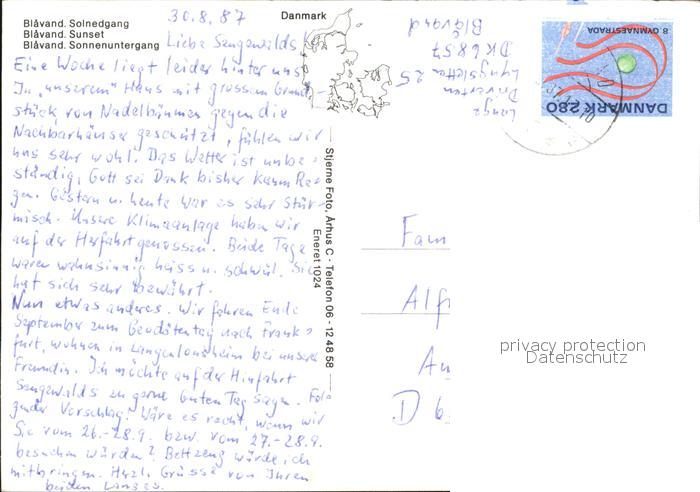 Blåvand. Solnedgang
Blåvand. Sunset
Blåvand. Sonnenuntergang
30.8.87
Danmark
Liebe Sengewalds
Eine Woche liegt leider hinter uns.
In „unserem" Haus mit grossem Grund-
stück von Nadelbäumen gegen die
Nachbarhäuser geschützt, fühlen wir
uns sehr wohl. Das Wetter ist unbe-
ständig, Gott sei Dank bisher kaum Re-
gen. Gestern u. heute war es sehr Stür-
misch. Unsere Klimaanlage haben wir
auf der Herfahrt genossen. Beide Tage
waren wahnsinnig heiss u. schwül. Sie
hat sich sehr bewährt.
Nun etwas anderes. Wir fahren Ende
September zum Geodätentag nach Frank-
furt, wohnen in Langenlonsheim bei unserer
Freundin. Ich möchte auf der Hinfahrt
Sengewalds zu gerne Guten Tag sagen. Fol-
gender Vorschlag: Wäre es recht, wenn wir
Sie vom 26.-28.9. bzw. vom 27.-28.9.
besuchen würden? Bettzeug würde ich
mitbringen. Herzl. Grüsse von Ihren
beiden Langes.
Stjerne Foto, Århus C · Telefon 06 - 12 48 58
Eneret 1024
Lange
Lyngsletten 25
DK 6857
Blåvand
8. GYMNAESTRADA
DANMARK 2.80
Fam
Alf
Au
D 6
privacy protection
Datenschutz